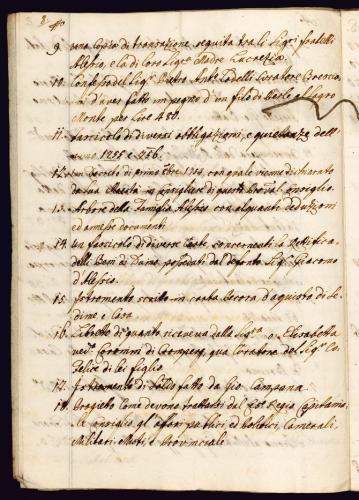 9. una Copia di transazione seguita tra li Sig.ri fratelli
Alesio, e la di loro Sig.ra Madre Lucrezia.
10. Confesso del Sig.r Pietro Ant.o Tadelli
d'aver fatto un pegno d'un filo di Perle al Sagro
Monte per Lire 450.
11. Fascicolo di diversi obbligazioni, e quietanze dell'
anno 1755 e 756.
12. un decreto di primo 1754, con quale vienne dichiarato
da sua Maestà un consigliere di questo
13. Arbore della Famiglia Alesio con alquante deduzioni
ed annessi documenti
14. un fascicolo di diverse Carte concernenti
delli Beni di Duino posseduti dal defonto Sig.r Giacomo
d'Alesio.
15. Istromento scritto in carta pecora d'aquisto di Se-
dime e Casa
16. Libretto di quanto riceveva dalla Sig.ra Elisabetta
ved.a qua Curatrice del Sig.r Co.
Felice di lei figlio
17. Istromento di Saldo fatto da Gio. Campana
18. Progietto come devono trattarsi dal Ces.o Regio Capitania-
le consiglio gl'affari publici ed politici, Camerali,
Militari, Misti, e Provinciali